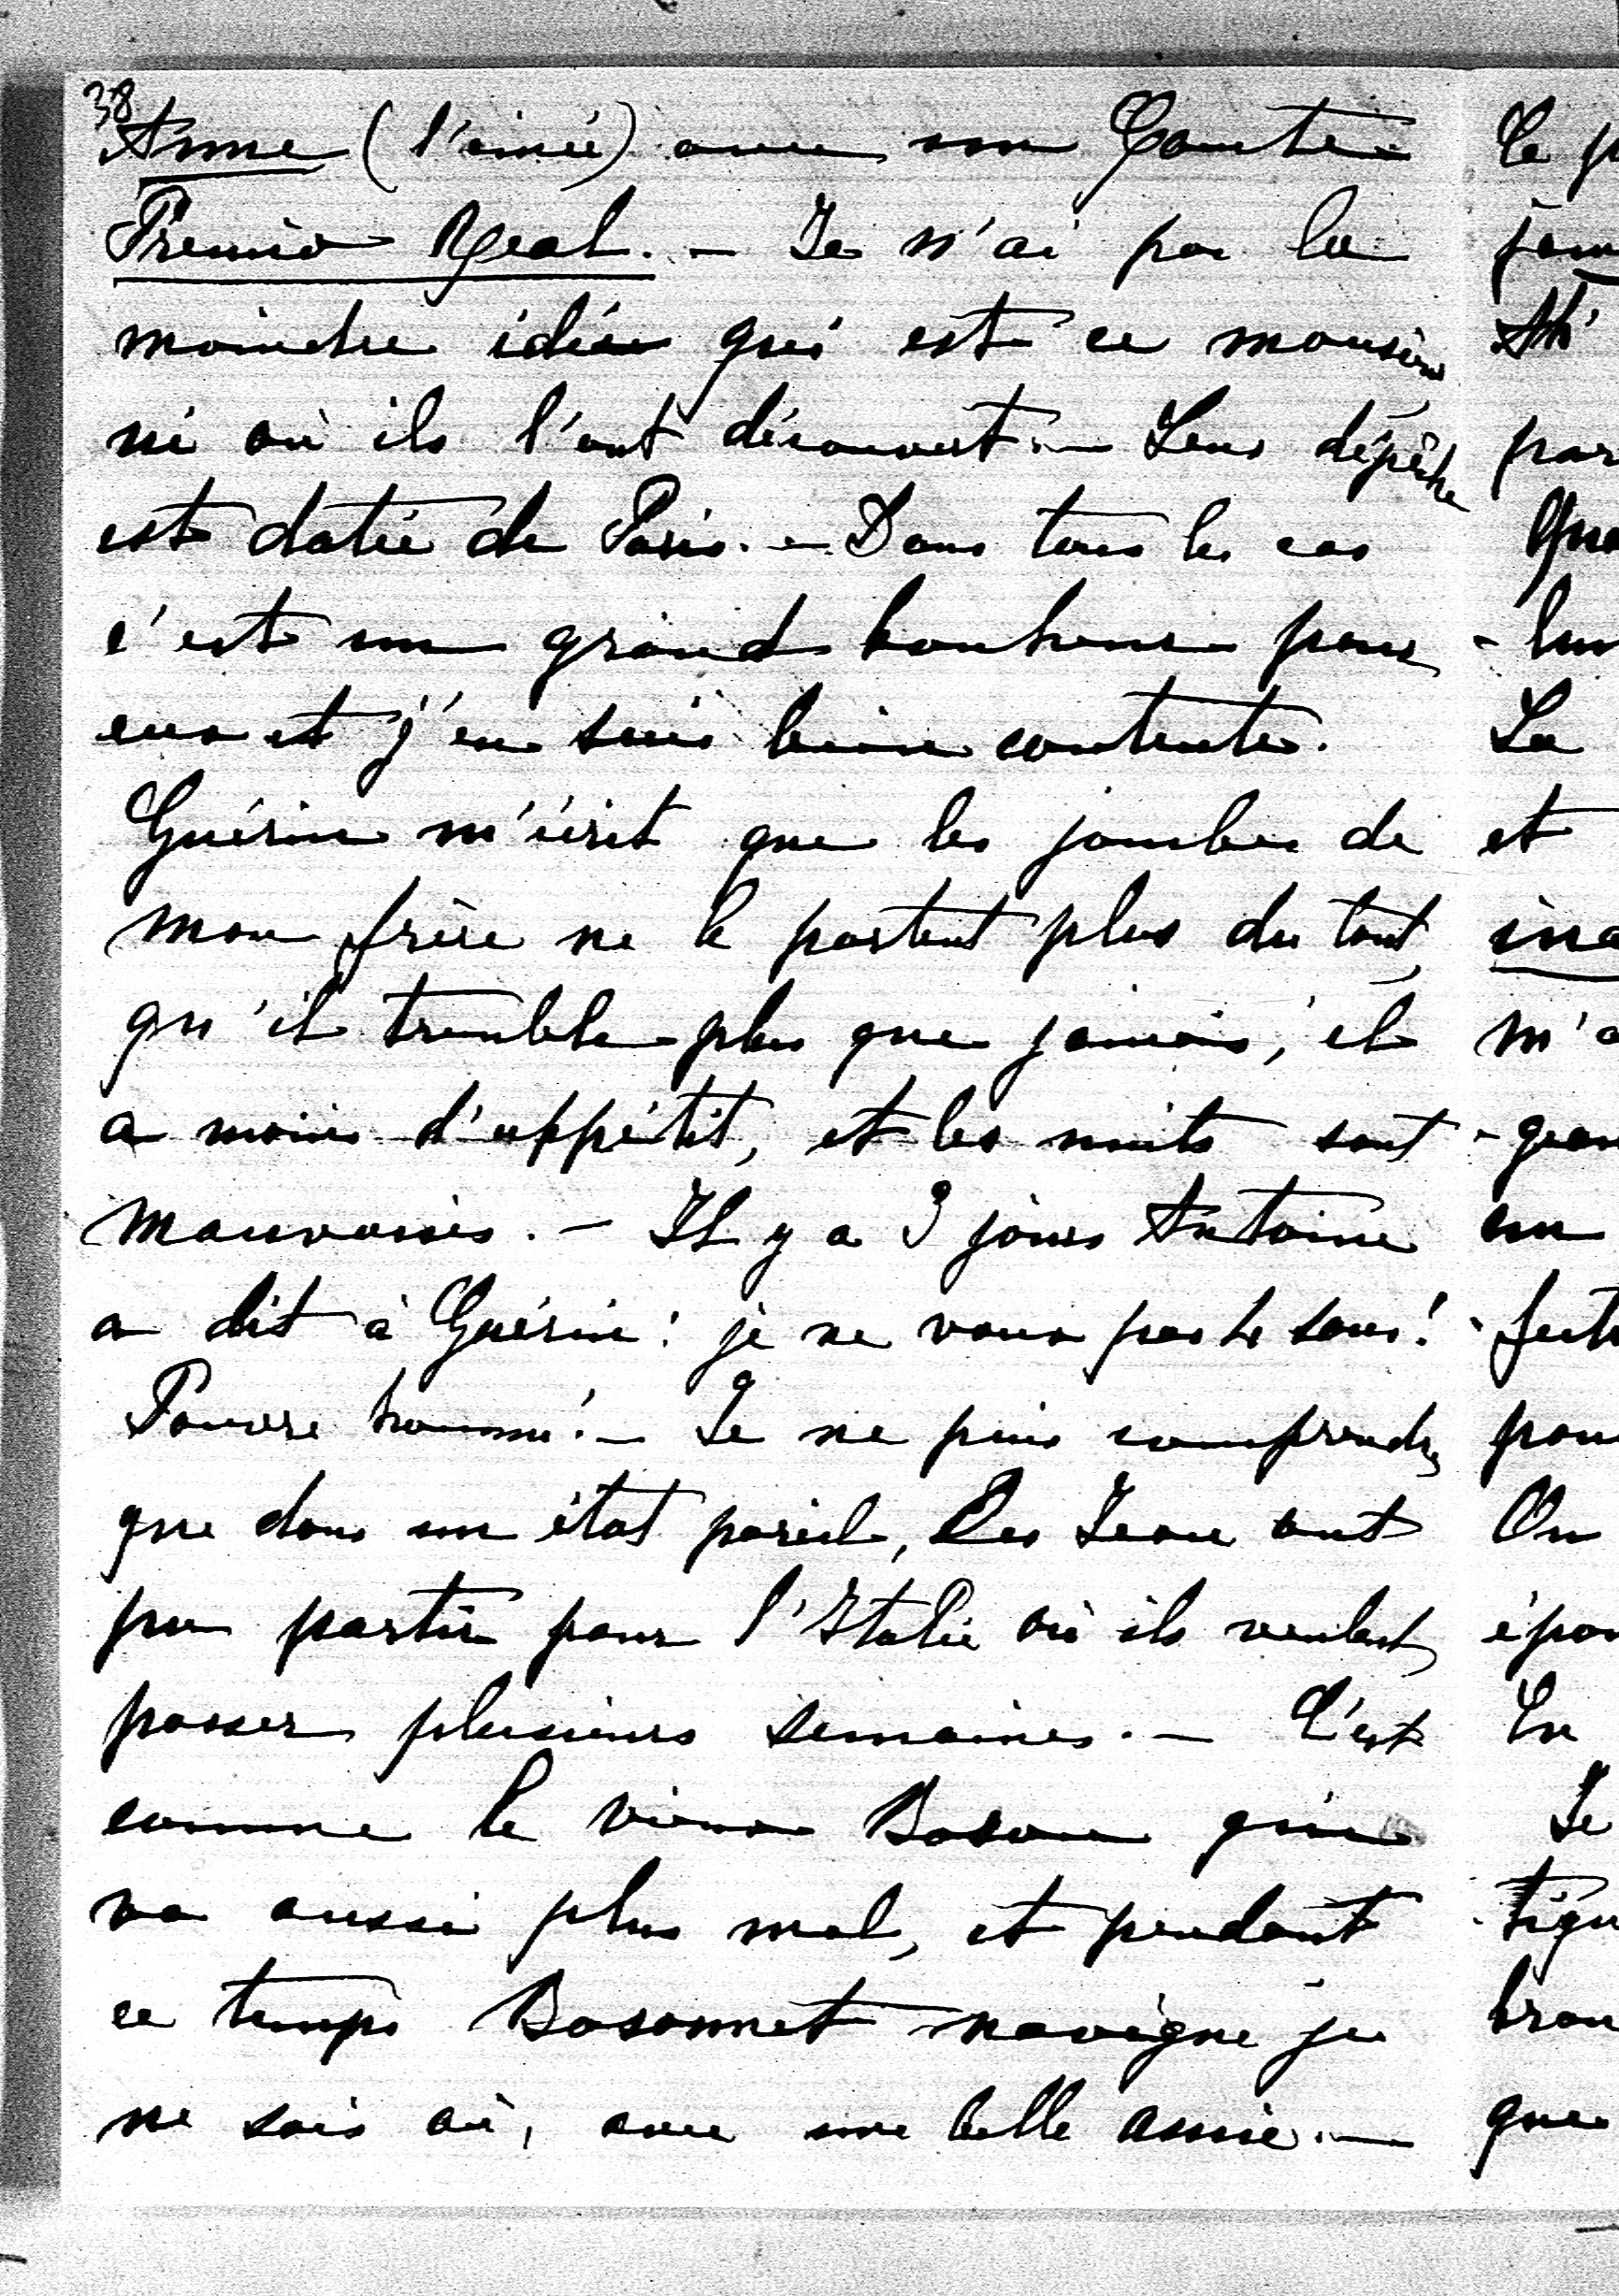 38
Anne (l'ainée) avec un Comte
Premio Réal. — Je n'ai pas la
moindre idée qui est ce monsieur
ni où ils l'ont découvert. — Leur dépêche
est datée de Paris. — Dans tous les cas
c'est un grand bonheur pour
eux et j'en suis bien contente.
Guérin m'écrit que les jambes de
mon frère ne le portent plus du tout,
qu'il tremble plus que jamais, il
a moins d'appétit, et les nuits sont
mauvaises. — Il y a 3 jours Antoine
a dit à Guérin: je ne vaux pas 2 sous!
Pauvre homme! — Je ne puis comprendre
que dans un état pareil, Les Jean ont
pu partir pour l'Italie où ils veulent
passer plusieurs semaines. — C'est
comme le vieux Boson qui
va aussi plus mal, et pendant
ce temps Bosonnet navigue je
ne sais où, avec une belle amie. —